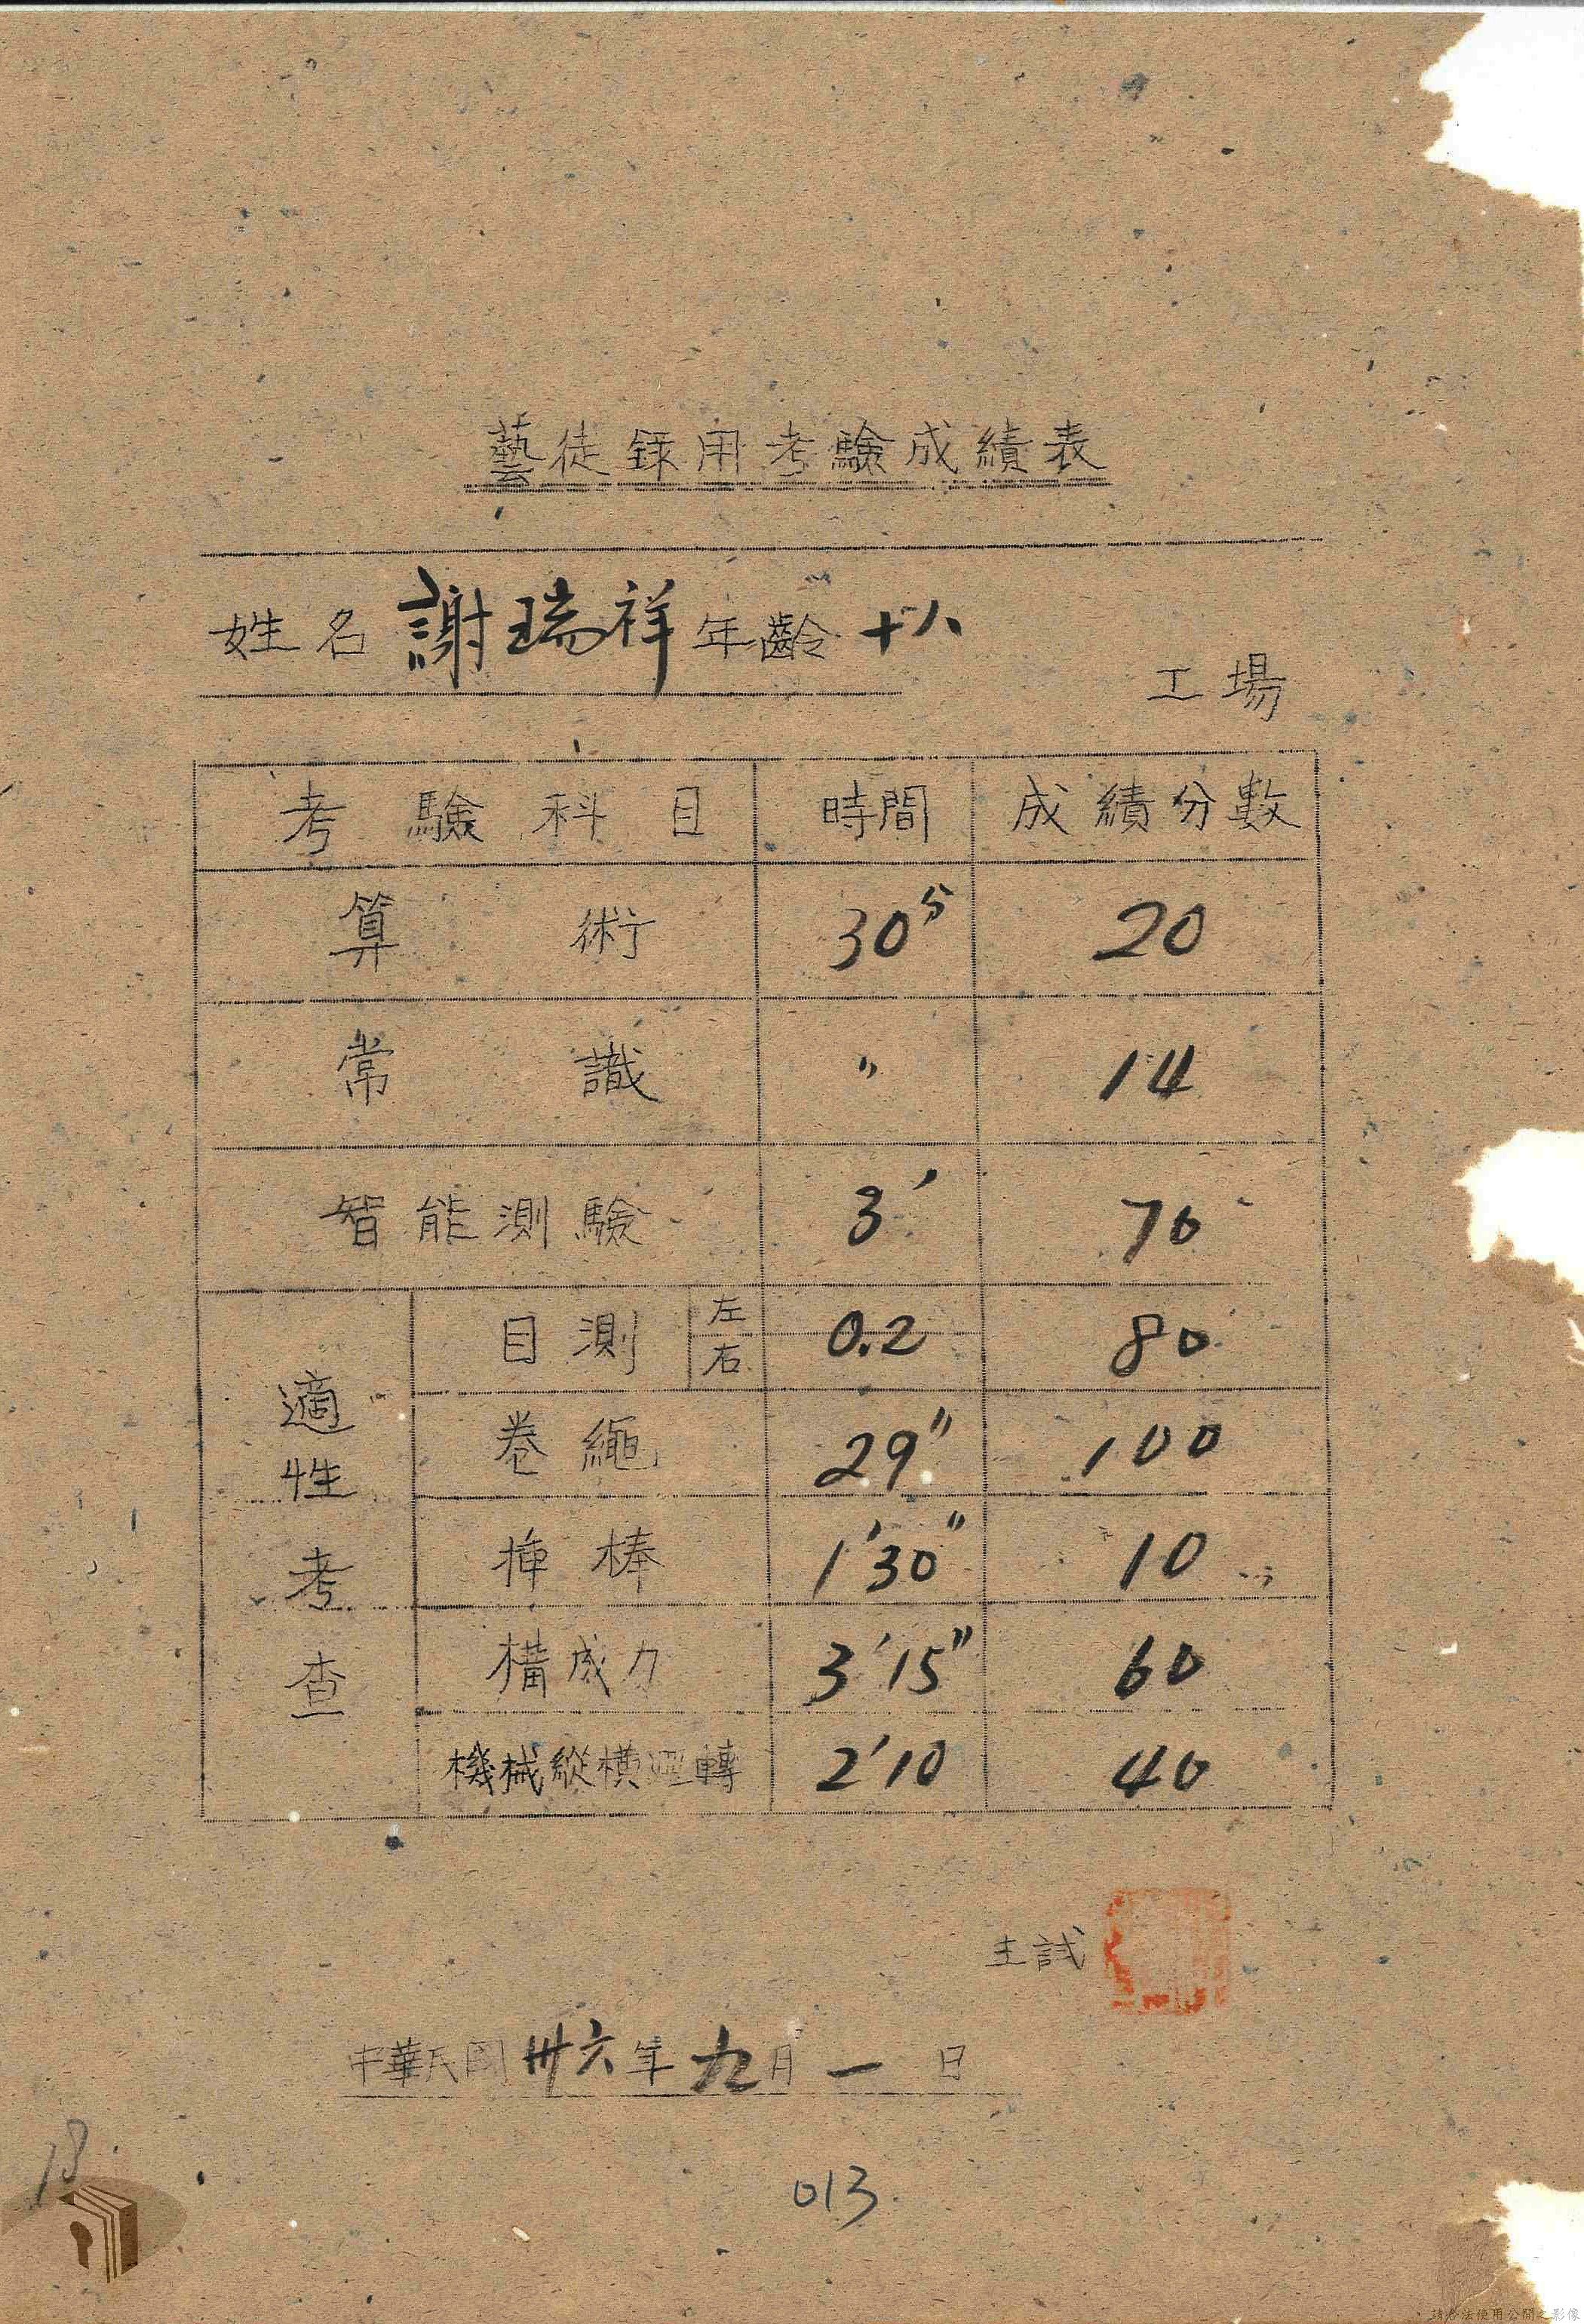 藝徒錄用考驗成績表
姓名 謝瑞祥 年齡 十八
工場
考驗科目 時間 成績分數
算術 30分 20
常識 〃 14
智能測驗 3′ 70
適性考查
目測 左 右 0.2 80
卷繩 29″ 100
挿棒 1′30″ 10
構成力 3′15″ 60
機械縱橫運轉 2′10 40
主試
中華民國卅六年九月一日
013
13